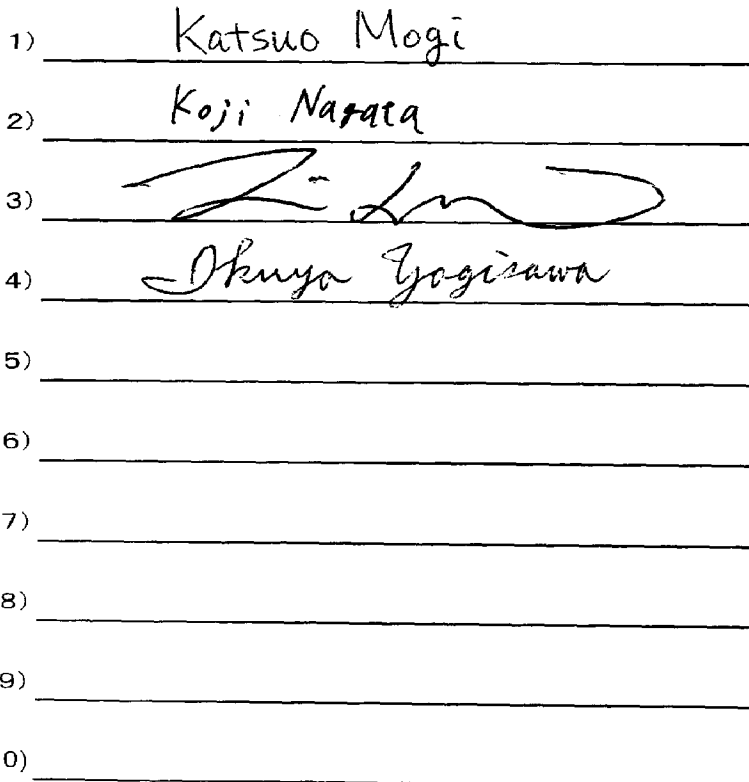 1) Katsuo Mogi
2) Koji Nagata
3)
4) Ikuya Yagisawa
5)
6)
7)
8)
9)
0)